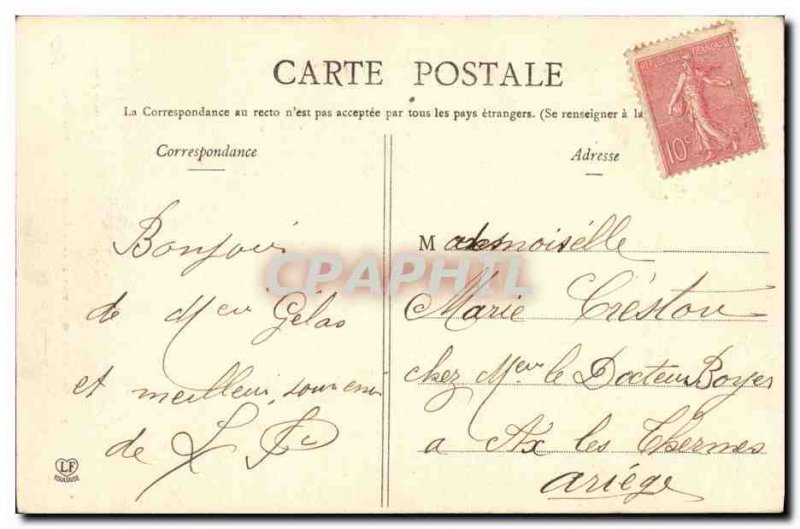 CARTE POSTALE
La Correspondance au recto n'est pas acceptée par tous les pays étrangers. (Se renseigner à la
Correspondance
Adresse
RÉPUBLIQUE FRANÇAISE
10c
Bonjour
de Mr Gélas
et meilleur souvenir
de L
Mademoiselle
Marie
chez Mr le Docteur Boyer
a Ax les Thermes
ariége
CPAPHIL
LF
TOULOUSE